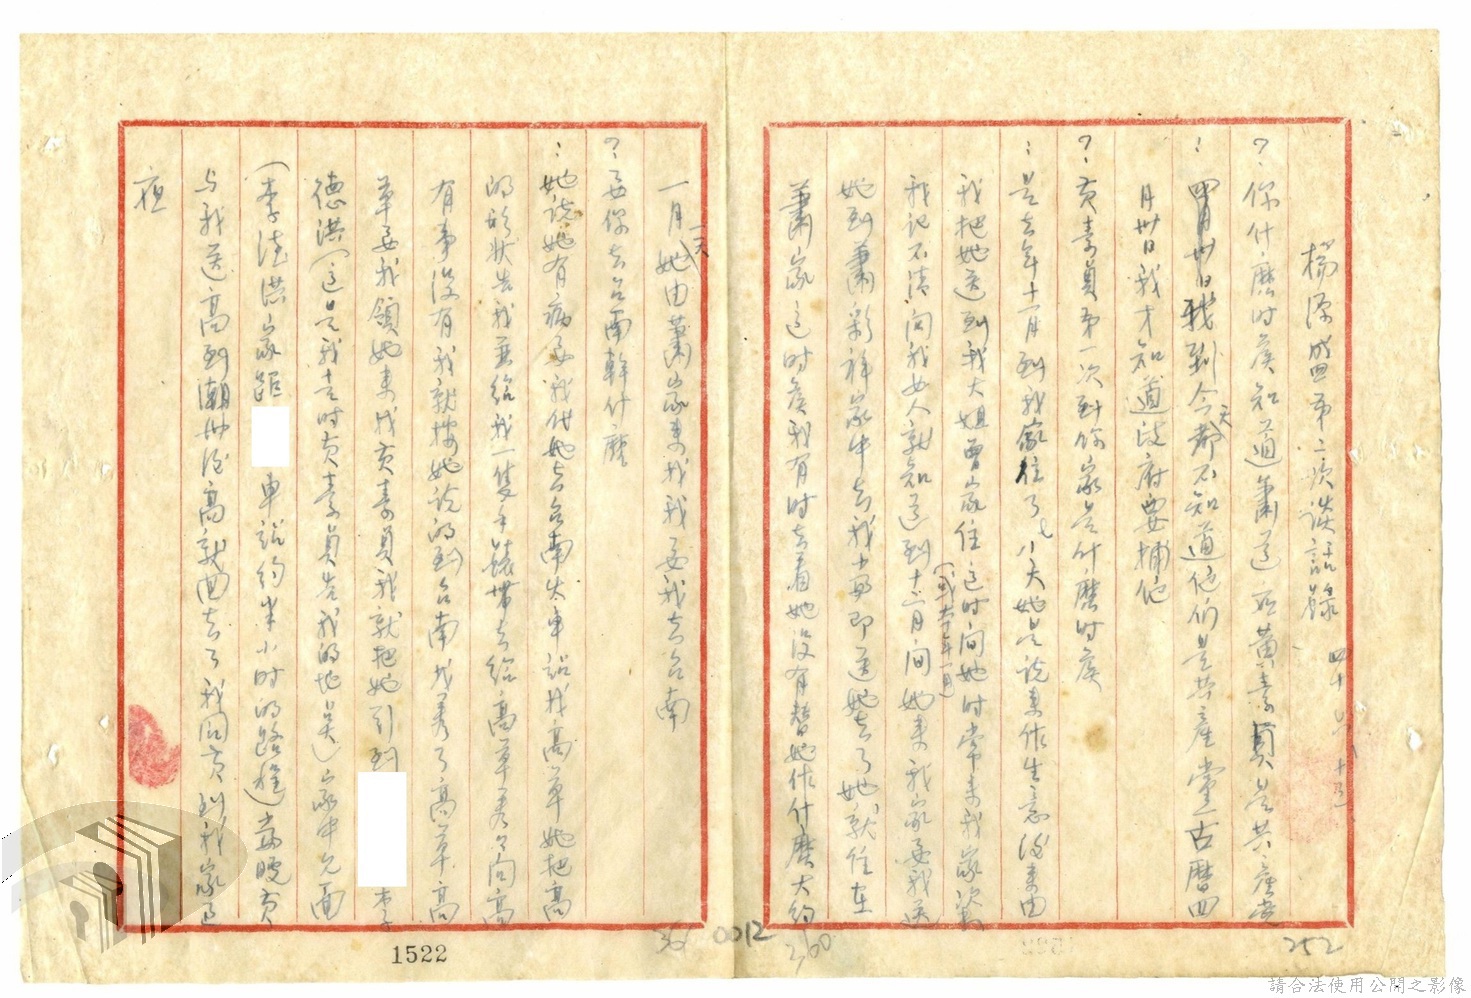 楊源盛第二次談話錄 四十、六、十五
?:你什麼時候知道蕭道應黃素貞是共產黨
:四月卅日我到今天都不知道他們是共產黨古曆四
月卅日我才知道政府要捕他
?:黃素貞第一次到你家是什麼時候
:是去年十一月到我家住了七八天她是說来作生意後来由
我把她送到我大姐曾家住這时间她时常来我家次數
我记不清问我女人就知道到十二月间(或本年一月)她来我家要我送
她到蕭彩祥家中去我當即送她去了她就住在
蕭家這时候我有时去看她没有替她作什麼大约
一月一天她由蕭家来找我要我去台南
?:要你去台南幹什麼
:她说她有病要我代她去台南火車站找高草她把高
的形狀告我並给我一隻手錶帶去给高草看看问高
有事没有我就按她说的到台南找着了高草高
草要我領她来找黃素貞我就把她引到 李
德洪(這是我去时黃素貞告我的地点)家中見面
(李德洪家距 車站约半小时的路程)當晚黃
与我送高到潮州後高就回去了我同黃到我家过
夜
1522
0012
260
252
請合法使用公開之影像